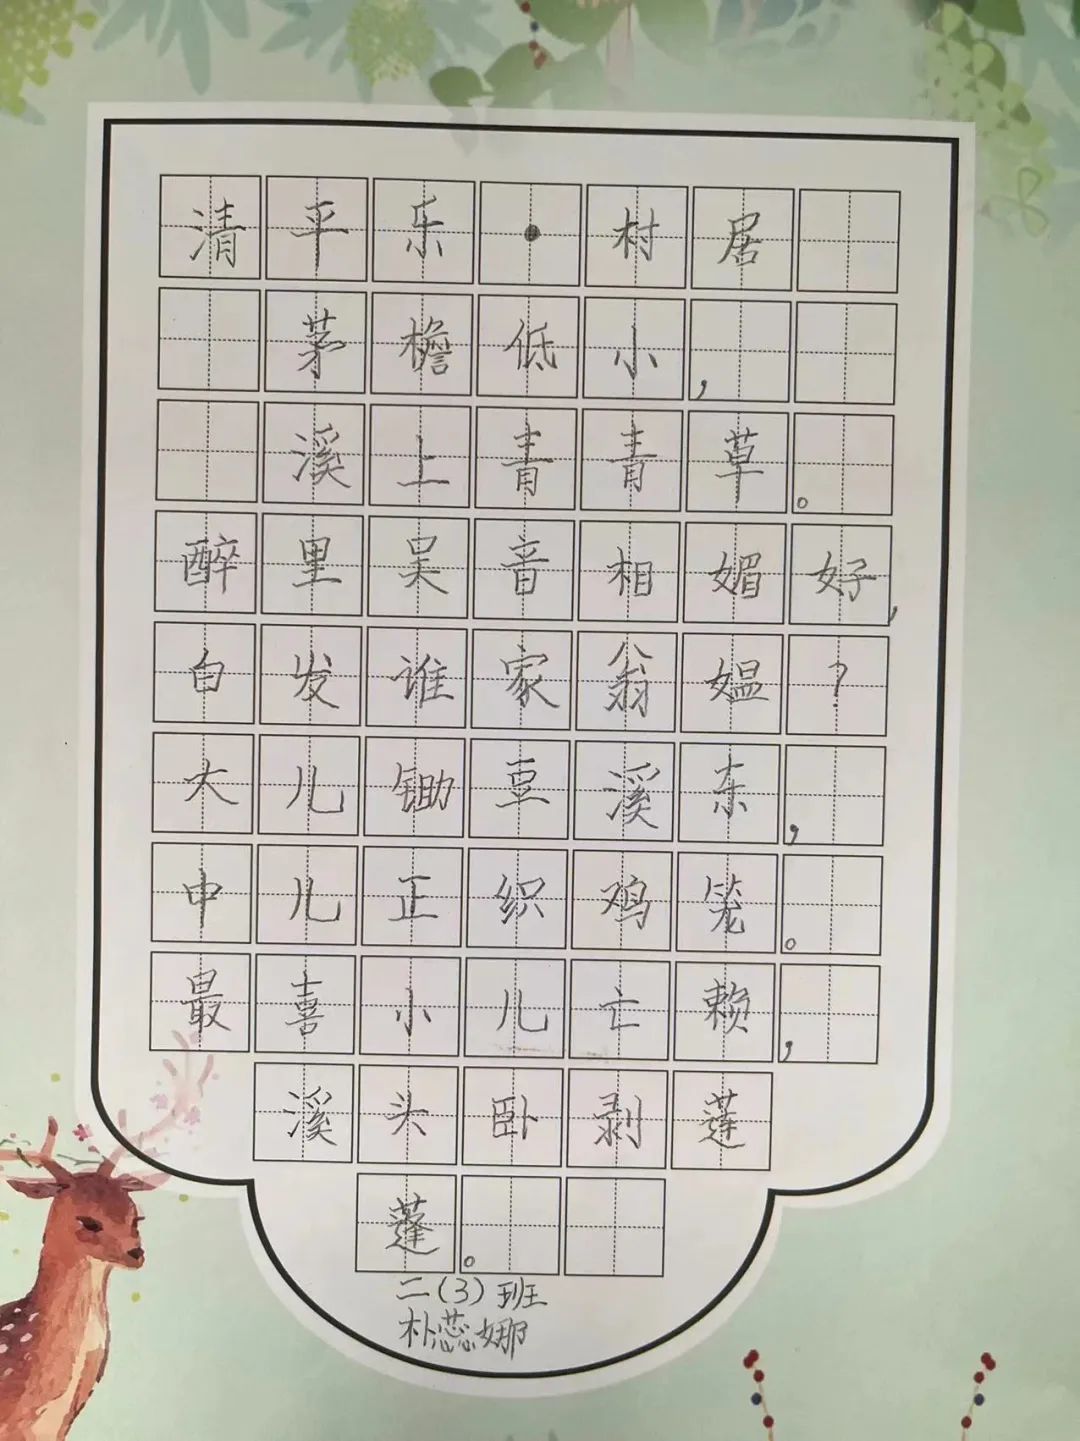 清平乐·村居
茅檐低小,
溪上青青草。
醉里吴音相媚好,
白发谁家翁媪?
大儿锄豆溪东,
中儿正织鸡笼。
最喜小儿亡赖,
溪头卧剥莲
蓬。
二(3)班
朴蕊娜